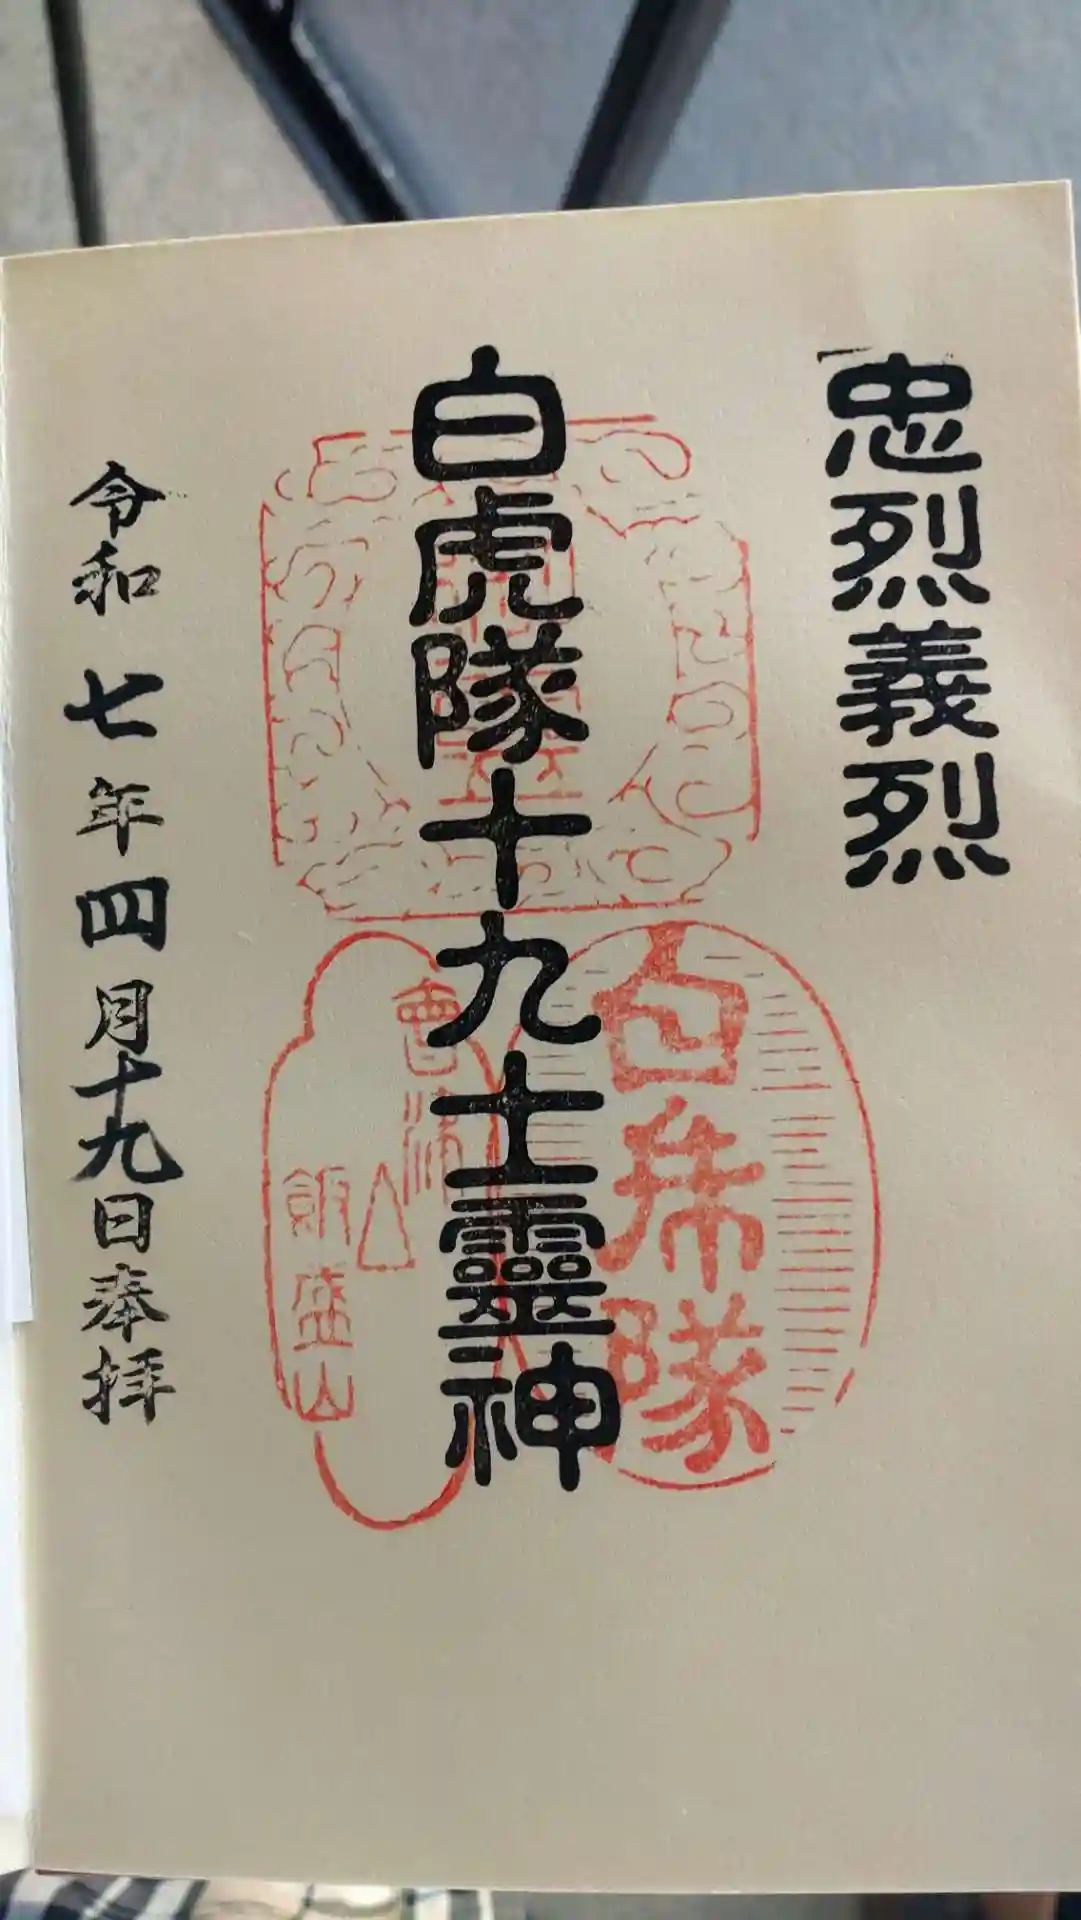 忠烈義烈
白虎隊十九士靈神
白虎隊
會津
飯盛山
令和七年四月十九日奉拝